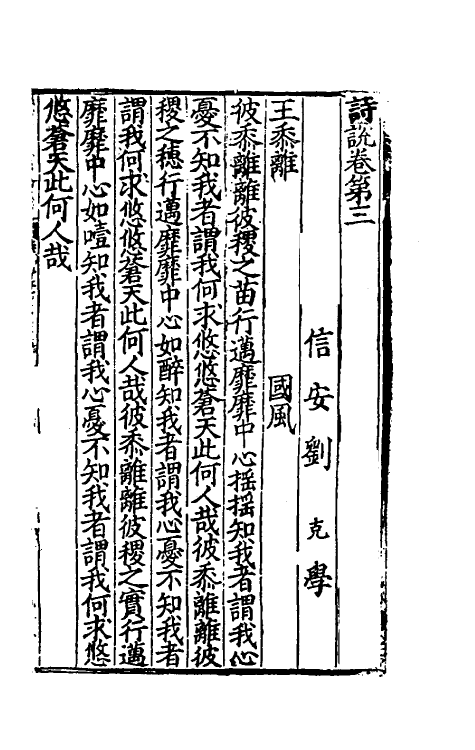 詩說卷第三
信安劉克學
王黍離　國風
彼黍離離彼稷之苗行邁靡靡中心搖搖知我者謂我心
憂不知我者謂我何求悠悠蒼天此何人哉彼黍離離彼
稷之穗行邁靡靡中心如醉知我者謂我心憂不知我者
謂我何求悠悠蒼天此何人哉彼黍離離彼稷之實行邁
靡靡中心如噎知我者謂我心憂不知我者謂我何求悠
悠蒼天此何人哉